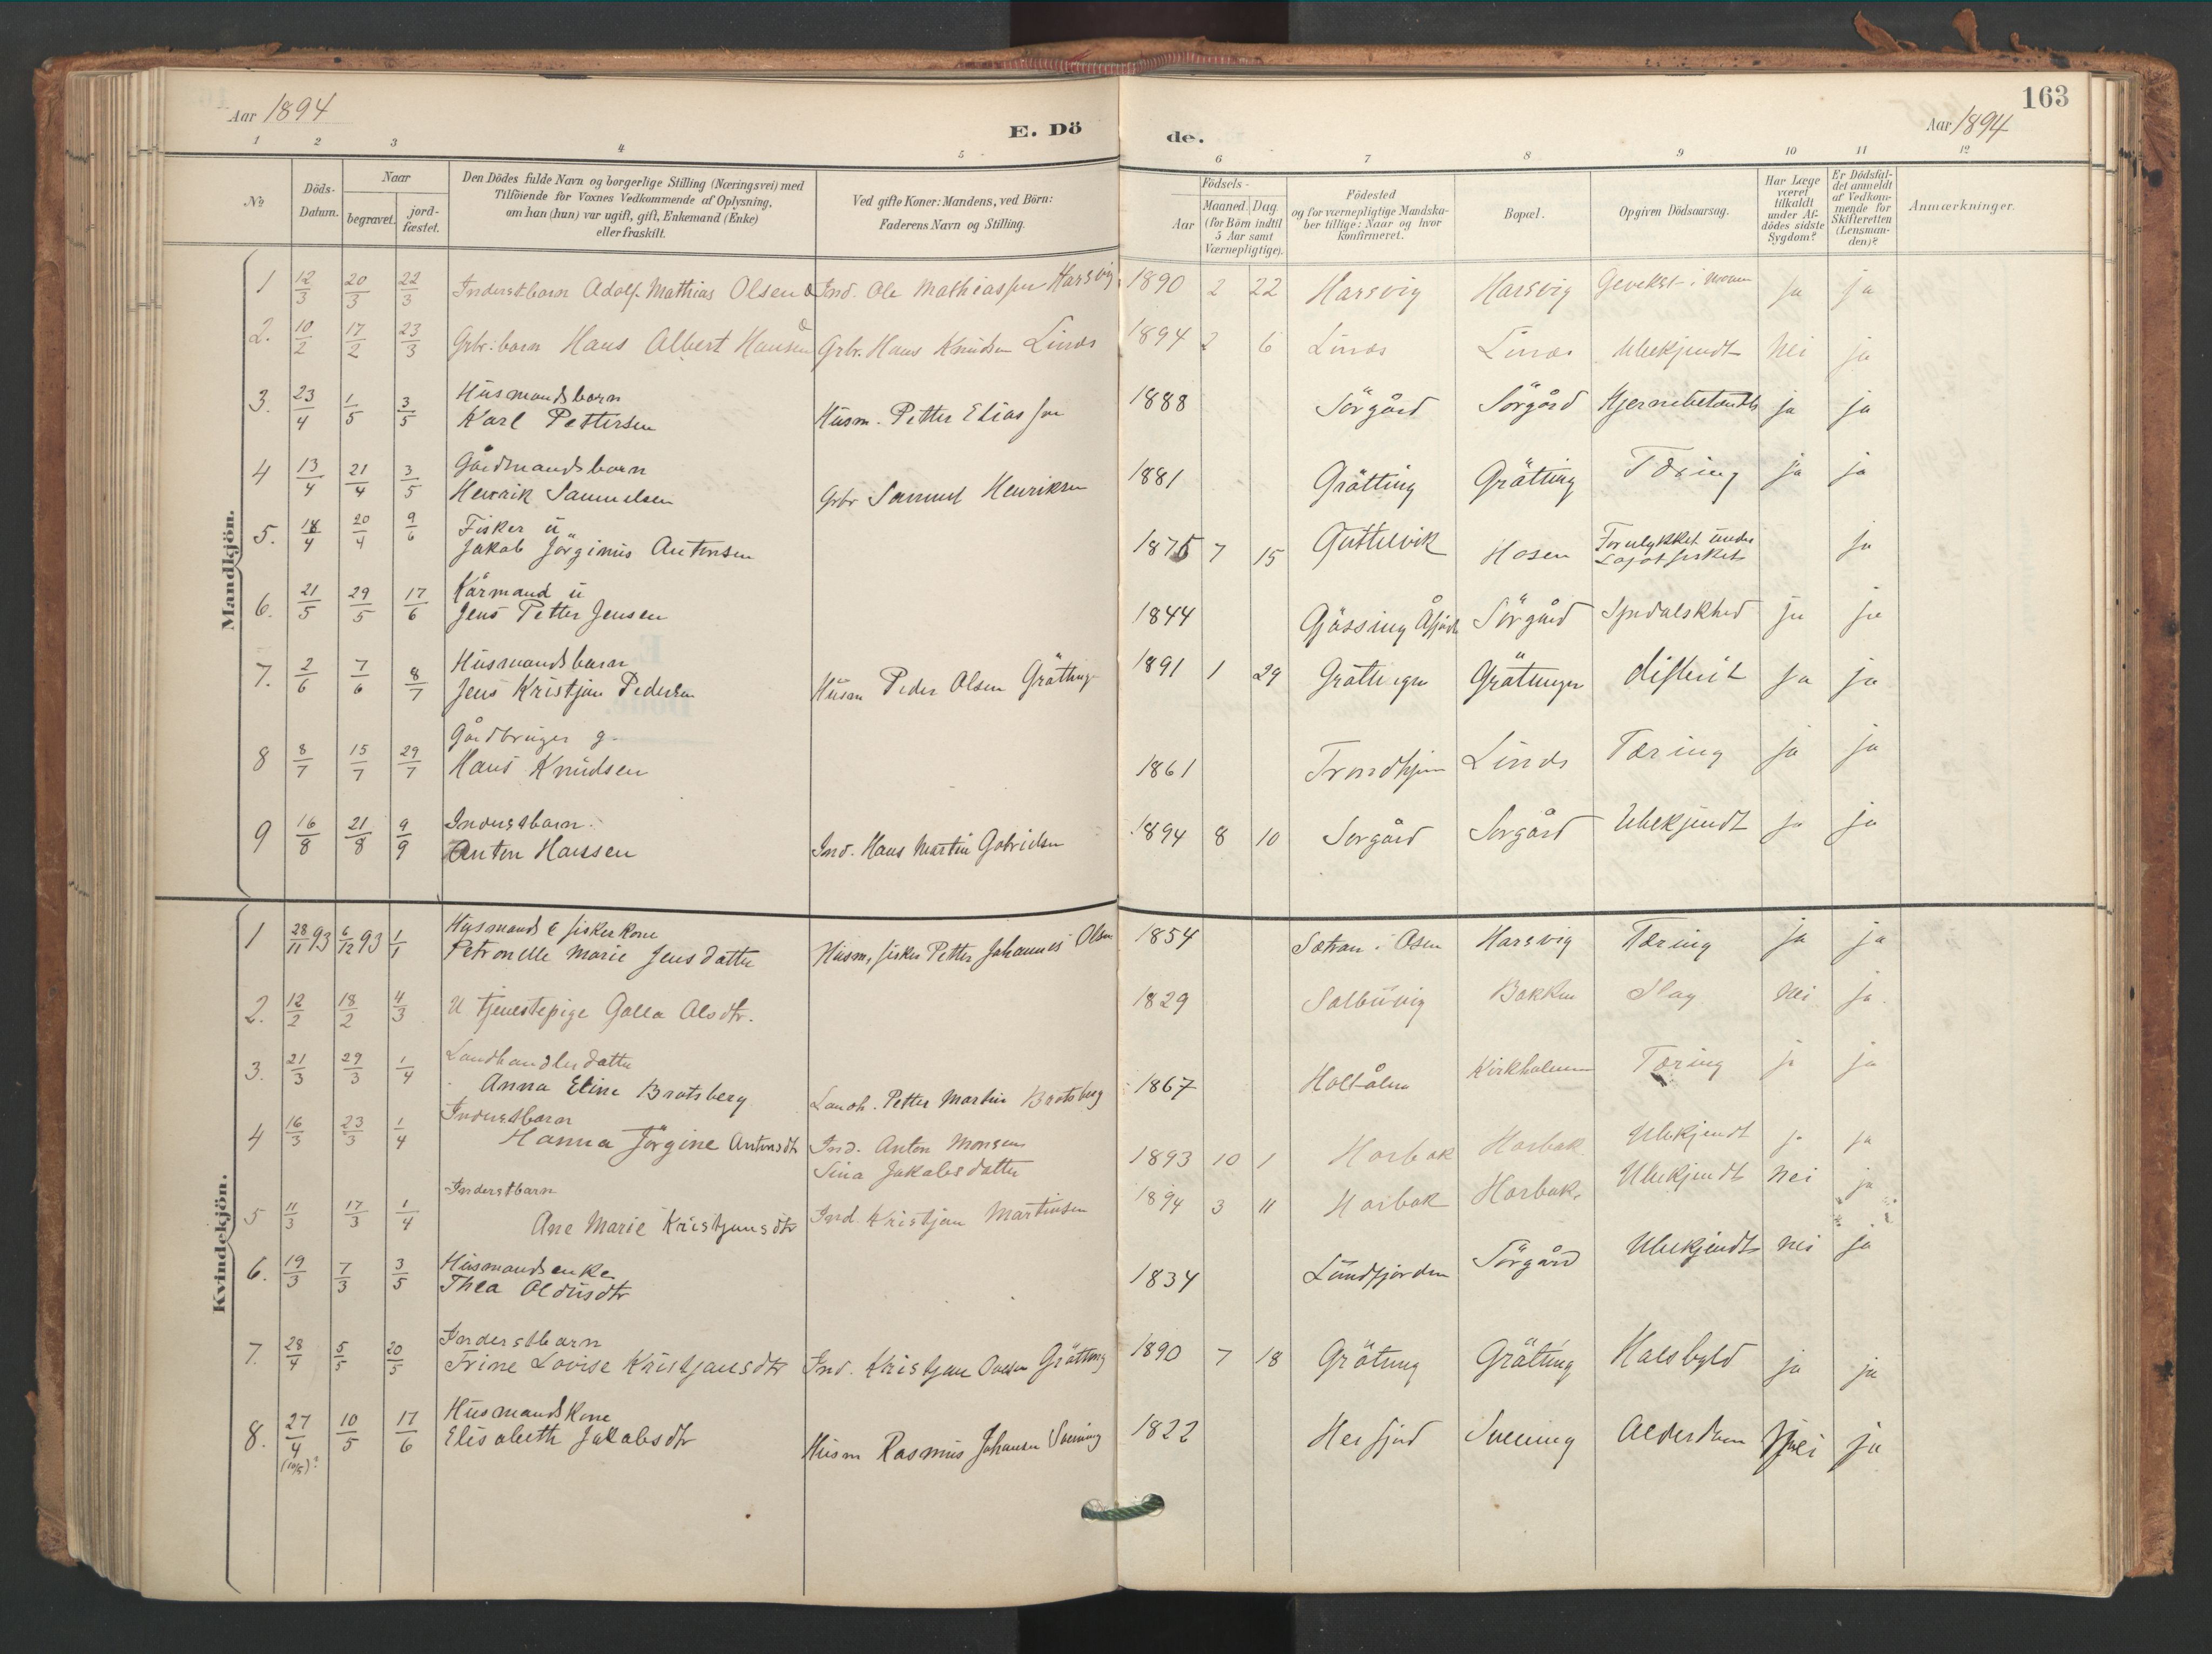 Aar 1894
E. Dö
de.
163
Aar 1894
1 2 3 4 5 6 7 8 9 10 11 12
No
Döds-Datum.
Naar
begravet.
jord-fæstet.
Den Dödes fulde Navn og borgerlige Stilling (Næringsvei) med
Tilföiende for Voxnes Vedkommende af Oplysning,
om han (hun) var ugift, gift, Enkemand (Enke)
eller fraskilt.
Ved gifte Koner: Mandens, ved Börn:
Faderens Navn og Stilling.
Födsels-
Aar
Maaned. Dag
(for Börn indtil
5 Aar samt
Værnepligtige).
Födested
og for værnepligtige Mandska-
ber tillige: Naar og hvor
konfirmeret.
Bopæl.
Opgiven Dödsaarsag.
Har Læge
været
tilkaldt
under Af-
dödes sidste
Sygdom?
Er Dödsfal-
det anmeldt
af Vedkom-
mende for
Skifteretten
(Lensman-
den)?
Anmærkninger.
Mandkjön.
1 12/3 20/3 22/3 Inderstbarn Adolf Mathias Olsen Ind. Ole Mathiassen Harsvig 1890 2 22 Harsvig Harsvig ja ja
2. 10/2 17/2 23/3 Grbr. barn Hans Albert Hansen Grbr. Hans Knudsen Linæs 1894 2 6 Linæs Linæs Ubekjendt Nei ja
3. 23/4 1/5 3/5 Husmandsbarn
Karl Pettersen Husm. Petter Eliassen 1888 Sörgård Sörgård ja ja
4 13/4 21/4 3/5 Gårdmandsbarn
Henrik Samuelsen Grbr Samuel Henriksen 1881 Gråtting Gråtting Tæring ja ja
5. 18/4 20/4 9/6 Fisker u
Jakob Jörginus Antonsen 1875 7 15 Guttelvik Hosen Forulykket under
Lofotfisket ja
6. 21/5 29/5 17/6 Kårmand u
Jens Petter Jensen 1844 Gjæssing Åfjord Sörgård Spedalskhed ja ja
7. 2/6 7/6 8/7 Husmandsbarn
Jens Kristjan Pedersen Husm Peder Olsen Gråtting 1891 1 29 Gråttingen Gråttingen difterit ja ja
8 8/7 15/7 29/7 Gårdbruger g.
Hans Knudsen 1861 Trondhjem Linæs Tæring ja ja
9 16/8 21/8 9/9 Inderstbarn.
Anton Hanssen Ind. Hans Martin Gabrielsen 1894 8 10 Sörgård Sörgård Ubekjendt ja ja
Kvindekjön.
1 28/11 93 6/12 93 1/1 Husmands & fiskerkone
Petronelle Marie Jensdatter Husm, fisker Petter Johannes Olsen 1854 Sætran i Osen Harsvig Tæring ja ja
2. 12/2 18/2 4/3 U. tjenestepige Golla Olsdtr. 1829 Salbuvig Bakken Slag nei ja
3. 21/3 29/3 1/4 Landhandlerdatter
Anna Eline Bratsberg Landh. Petter Martin Bratsberg 1867 Holtålen Kirkholmen Tæring ja ja
4 16/3 23/3 1/4 Inderstbarn
Hanna Jörgine Antonsdtr Ind. Anton Monsen
Sina Jakobsdatter 1893 10 1 Harbak Harbak Ubekjendt ja ja
5 11/3 17/3 1/4 Inderstbarn
Ane Marie Kristjansdtr Ind. Kristjan Martinsen 1894 3 11 Harbak Harbak. Ubekjendt nei ja
6. 19/3 7/3 3/5 Husmandsenke
Thea Oldusdtr 1834 Lundfjorden Sörgård Ubekjendt nei ja
7. 28/4 5/5 20/5 Inderstbarn
Trine Lovise Kristjansdtr Ind. Kristjan Gråtting 1890 7 18 Gråtting Gråtting Halsbyld ja ja
8. 27/4 10/5 17/6 Husmandskone
Elisabeth Jakobsdtr Husm Rasmus Johansen Sveening 1822 Herfjord Sveening Alderdom Nei ja
(10/5)?